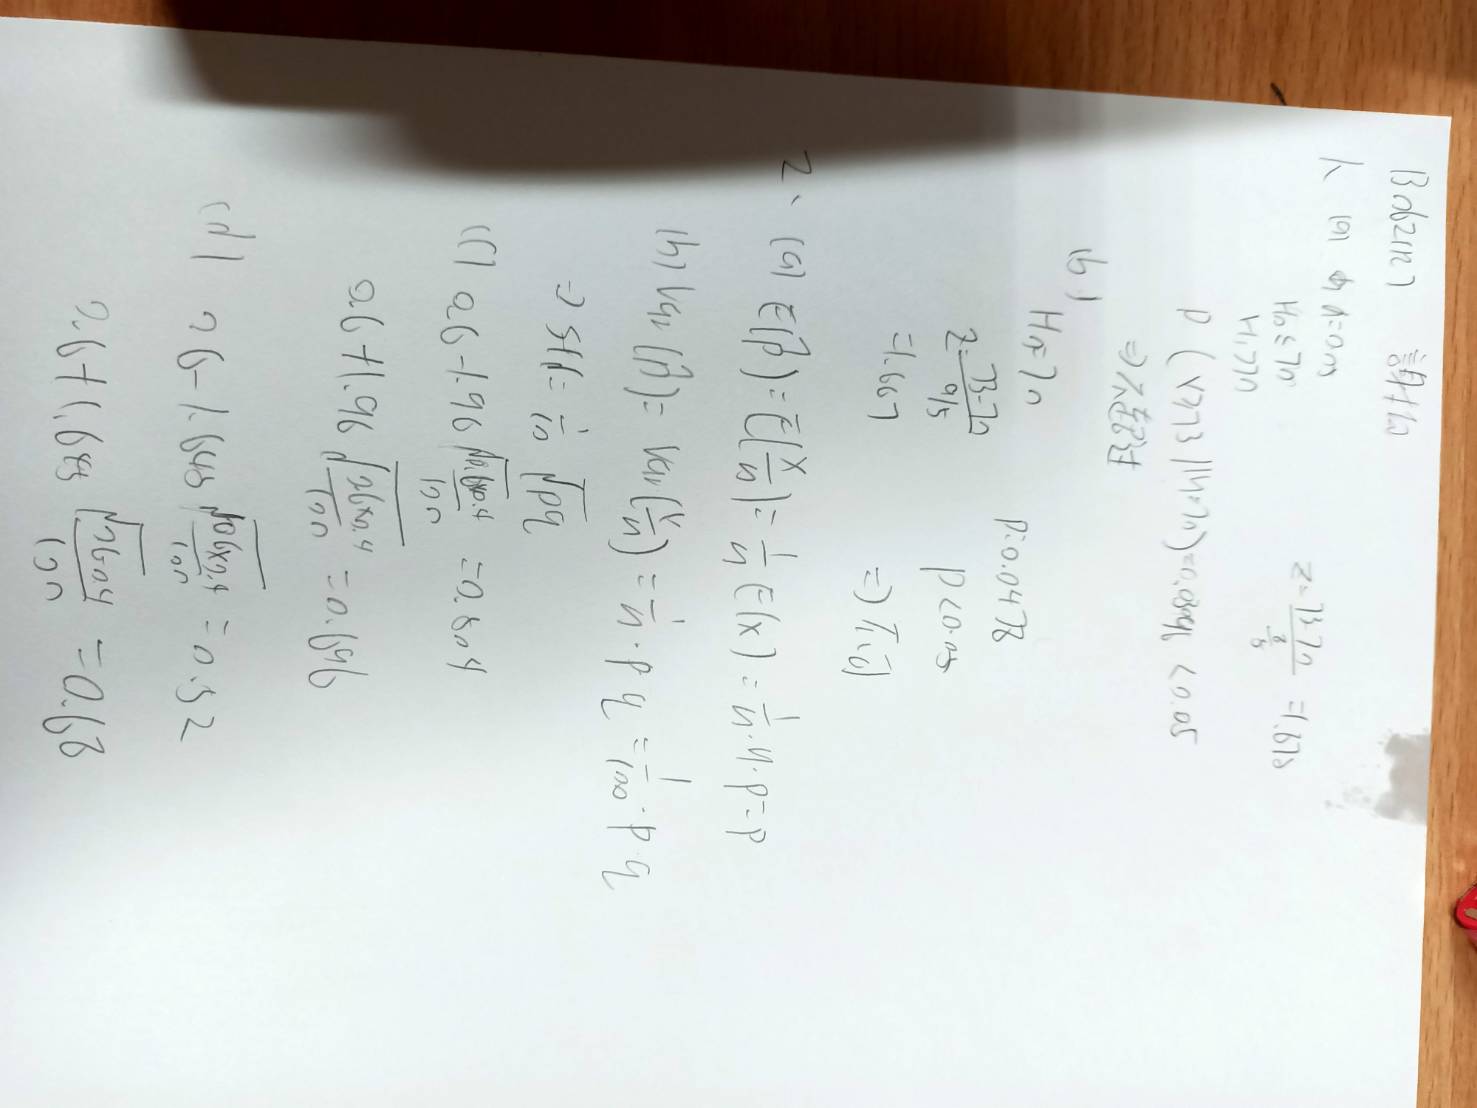 1、(a) 令α=0.05
H₀≤70
H₁>70
Z=73-70/8/5=1.875
P(X>73|H=70)=0.0304<0.05
(b)
H₀=70
P:0.0478
Z=73-70/9/5
P<0.05
=1.667
2、(a) E(p̂)=E(X/n)=1/n E(X)=1/n·n·p=p
(b) Var(p̂)=Var(X/n)=1/n·pq=1/100·pq
⇒ 1/10 √pq
(c) 0.6-1.96√0.6×0.4/100=0.504
0.6+1.96√0.6×0.4/100=0.696
(d) 0.6-1.645√0.6×0.4/100=0.52
0.6+1.645√0.6×0.4/100=0.68